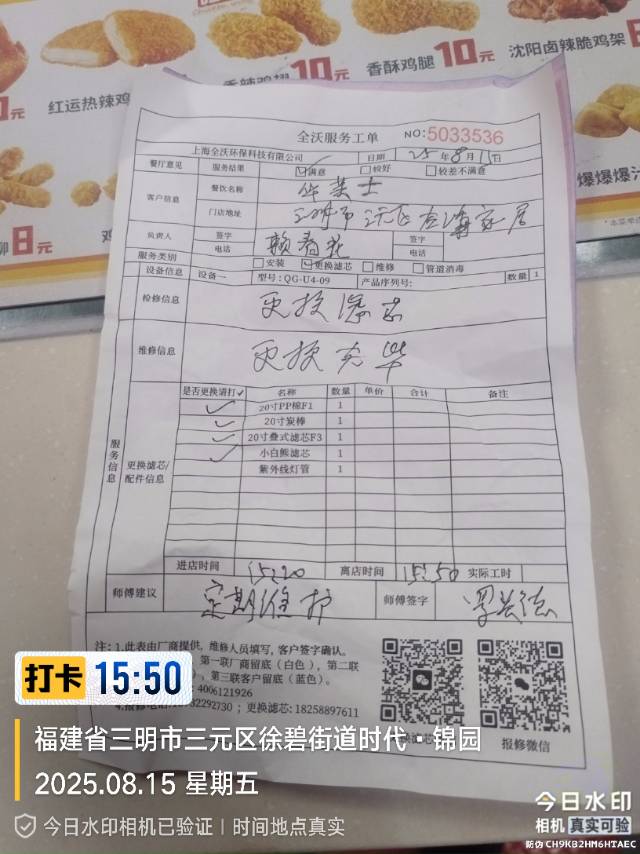 香辣鸡翅 10元
香酥鸡腿10元
沈阳卤辣脆鸡架
红运热辣鸡
爆爆爆汁
8元
全沃服务工单 NO:5033536
上海全沃环保科技有限公司 日期 25年8月15日
餐厅意见 服务结果 满意 较好 较差不满意
客户信息 餐饮名称 华莱士
门店地址 三明市三元区
负责人 签字 赖春花 签字
电话 电话
服务类别 安装 更换滤芯 维修 管道消毒
设备信息 设备一 型号:QG-U4-09 产品序列号: 数量 1
检修信息 更换滤芯
维修信息 更换完毕
服务信息 更换滤芯/配件信息
是否更换请打✓ 名称 数量 单价 合计 备注
✓ 20寸PP棉F1 1
✓ 20寸炭棒 1
✓ 20寸叠式滤芯F3 1
✓ 小白熊滤芯 1
紫外线灯管 1
进店时间 15:20 离店时间 15:50 实际工时
师傅建议 定期维护 师傅签字
注:1.此表由厂商提供,维修人员填写,客户签字确认。
第一联厂商留底(白色),第二联
第三联客户留底(蓝色)。
4006121926
2292730;更换滤芯:18258897611
报修微信
打卡 15:50
福建省三明市三元区徐碧街道时代·锦园
2025.08.15 星期五
今日水印相机已验证 | 时间地点真实
今日水印
相机 真实可验
防伪 CH9KB2HM6HTAEC